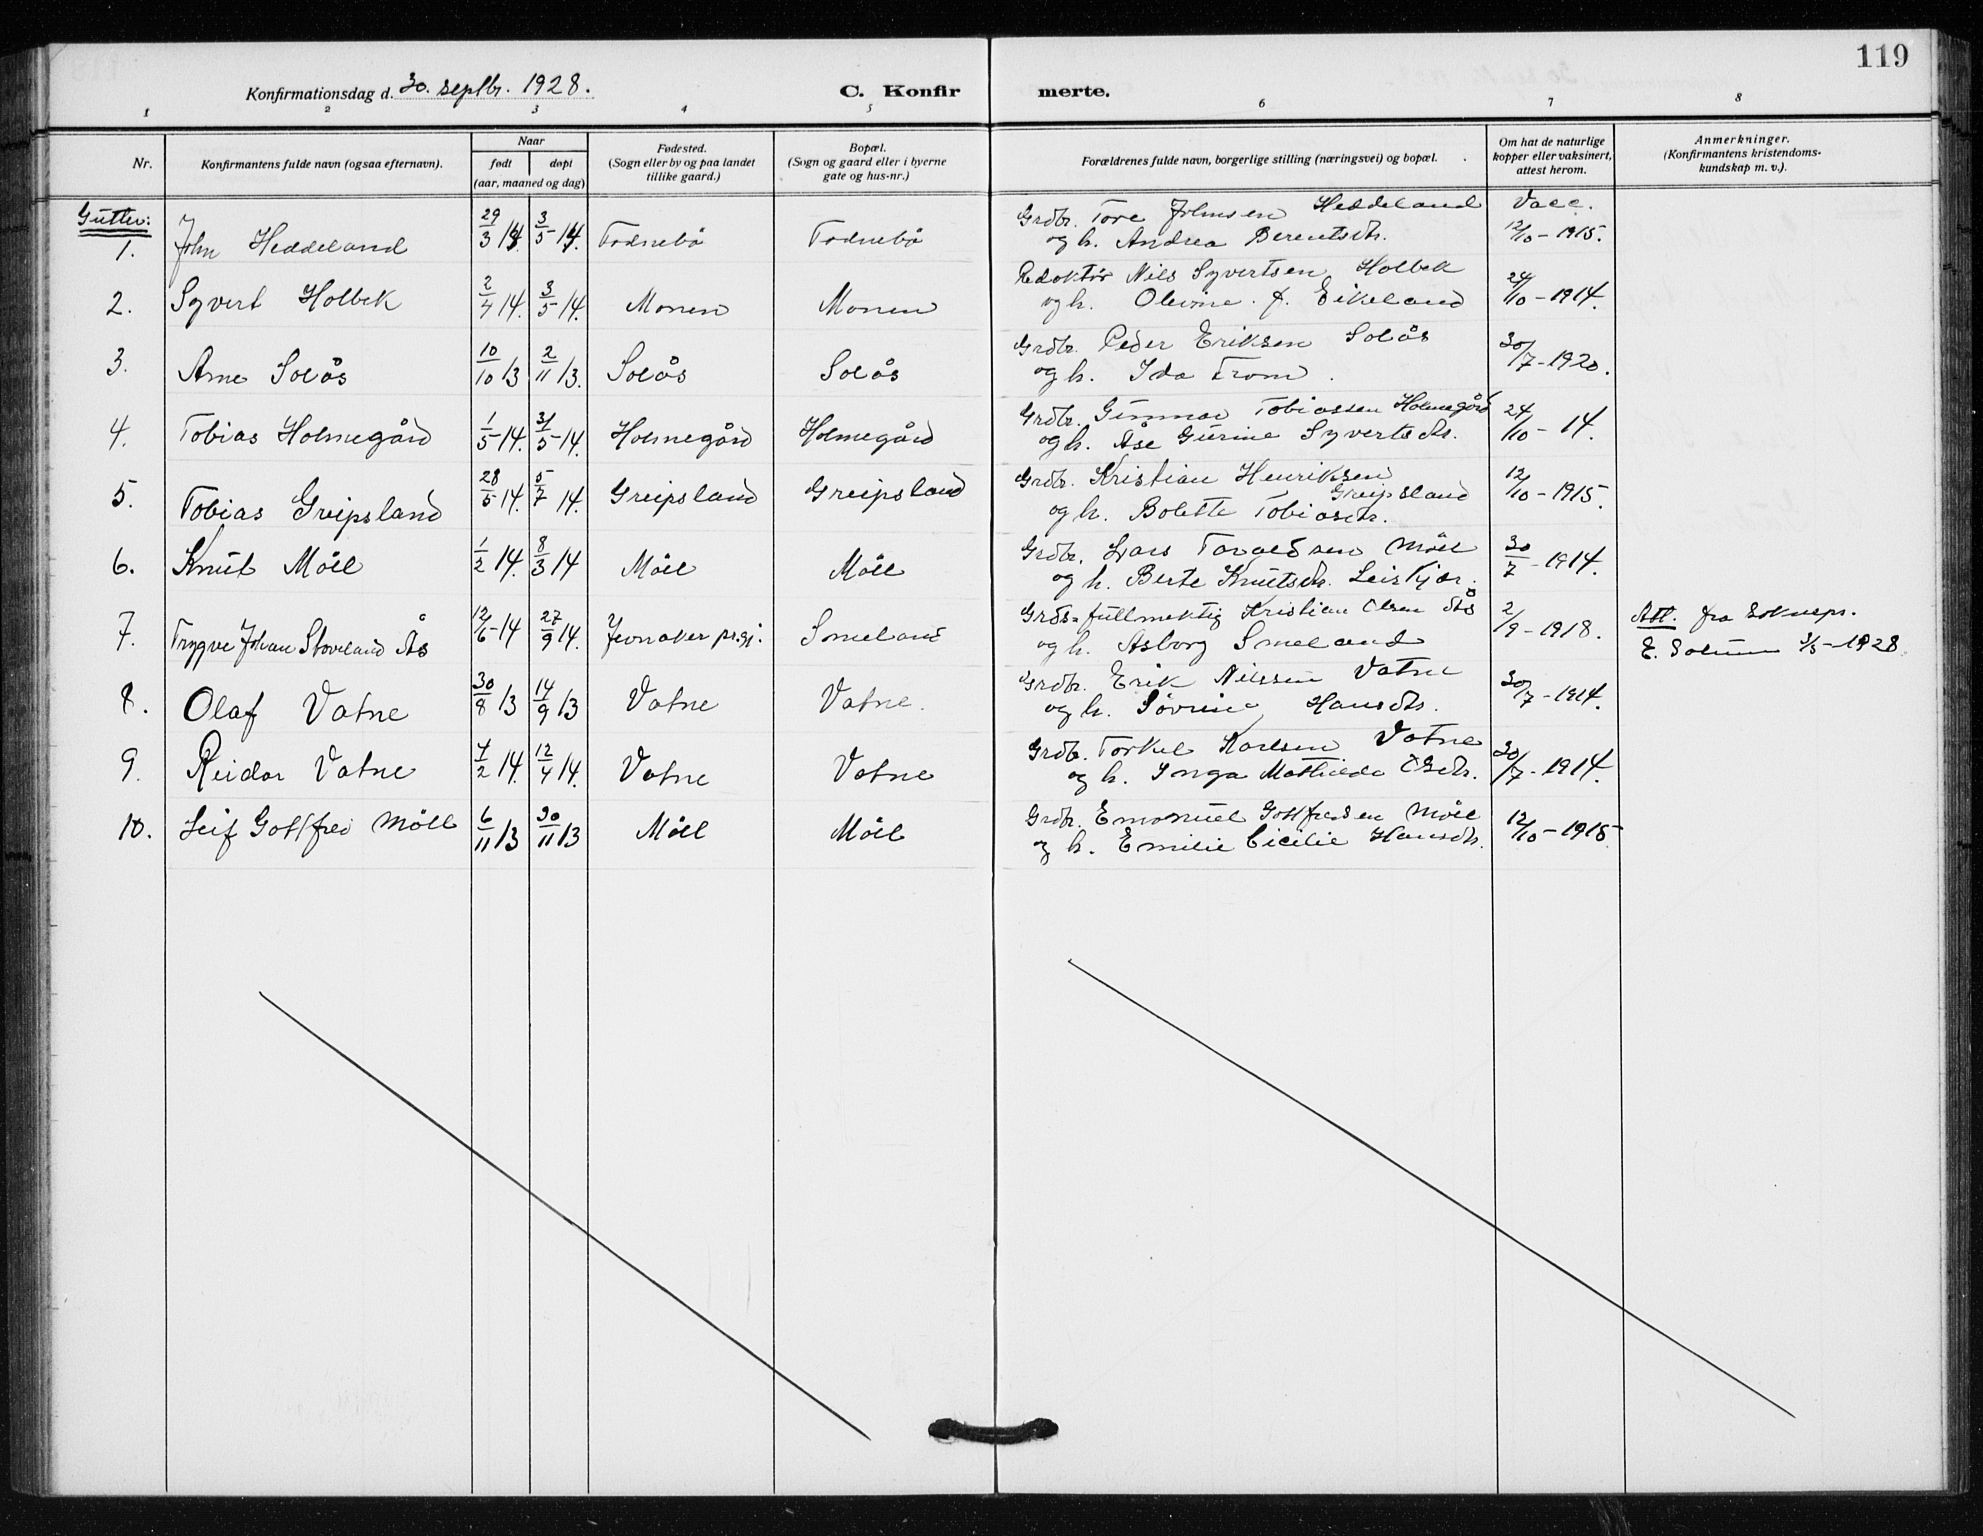 119
Konfirmationsdag d. 30. septbr. 1928.
C. Konfirmerte.
1 2 3 4 5 6 7 8
Nr.
Konfirmantens fulde navn (ogsaa efternavn).
Naar
født
døpt
(aar, maaned og dag)
Fødested.
(Sogn eller by og paa landet
tillike gaard.)
Bopæl.
(Sogn og gaard eller i byerne
gate og hus-nr.)
Forældrenes fulde navn, borgerlige stilling (næringsvei) og bopæl.
Om hat de naturlige
kopper eller vaksinert,
attest herom.
Anmerkninger.
(Konfirmantens kristendoms-
kundskap m. v.).
Gutter:
1. John Heddeland 29/3 14 3/5 14 Todnebø Todnebø Grdbr. Tore Johnsen Heddeland Vacc.
og h. Andrea Berentsdtr. 12/10 - 1915.
2. Syvert Holbek 2/4 14. 3/5 14. Monen Monen Redaktør Nils Syvertsen Holbek 24/10 - 1914.
og h. Olevine f. Eikeland
3. Arne Solås 10/10 13 2/11 13. Solås Solås Grdbr. Peder Eriksen Solås 30/7 - 1920.
og h. Ida From.
4. Tobias Holmegård 1/5 14. 31/5 14. Holmegård Holmegård Grdbr. Gunnar Tobiassen Holmegård 24/10 - 14.
og h. Åse Gurine Syvertsdtr.
5. Tobias Greipsland 28/5 14. 5/7 14. Greipsland Greipsland Grdbr. Kristian Henriksen
Greipsland 12/10 - 1915.
og h. Bolette Tobiasdtr.
6. Knut Möll 1/2 14. 8/3 14 Möll Möll Grdbr. Lars Torgedsen Möll 30/7 - 1914.
og h. Berte Knutsdtr. Leiskjær.
7. Trygve Johan Stoveland Ås 12/6 - 14 27/9 14. Jevnaker prgj. Smeland Grds=fullmektig Kristian Olsen Ås 2/9 - 1918. Att. fra Soknepr.
og h. Asborg Smeland E. Solum 3/5 - 1928.
8. Olaf Vatne 30/8 13 14/9 13 Vatne Vatne. Grdbr. Erik Nilssen Vatne 30/7 - 1914.
og h. Sørine Hansdtr.
9. Reidar Vatne 7/2 14. 12/4 14. Vatne Vatne Grdbr. Torkel Karlsen Vatne 30/7 - 1914.
og h. Inga Mathilde Olsdtr.
10. Leif Gottfred Möll 6/11 13 30/11 13 Möll Möll Grdbr. Emanuel Gottfredsen Möll 12/10 - 1915
og h. Emilie Cicilie Hansdtr.